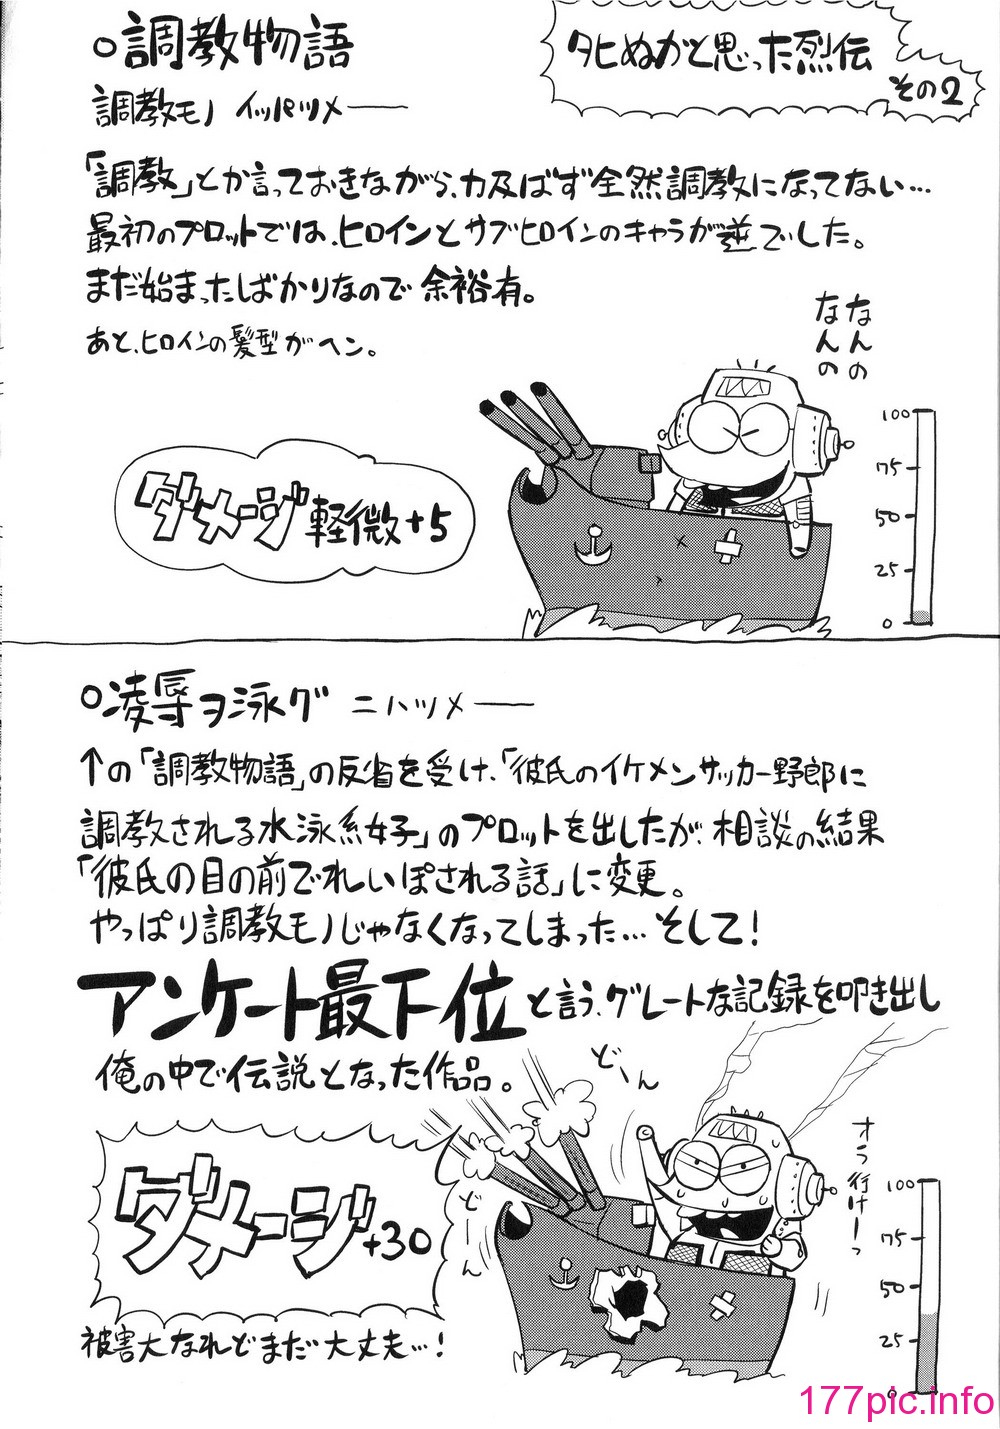 タヒぬかと思った烈伝
その2
○調教物語
調教モノ イッパツメ――
「調教」とか言っておきながら、力及ばず全然調教になってない…
最初のプロットでは、ヒロインとサブヒロインのキャラが逆でした。
まだ始まったばかりなので余裕有。
あと、ヒロインの髪型がヘン。
なんの
なんの
ダメージ軽微+5
100
75
50
25
0
○凌辱ヲ泳グ ニハツメ――
↑の「調教物語」の反省を受け、「彼氏のイケメンサッカー野郎に
調教される水泳系女子」のプロットを出したが、相談の結果
「彼氏の目の前でれいぽされる話」に変更。
やっぱり調教モノじゃなくなってしまった…そして!
アンケート最下位と言う、グレートな記録を叩き出し
俺の中で伝説となった作品。
どーん
オラ行けーっ
ダメージ+30
どーん
100
75
50
25
0
被害大なれどまだ大丈夫…!
177pic.info